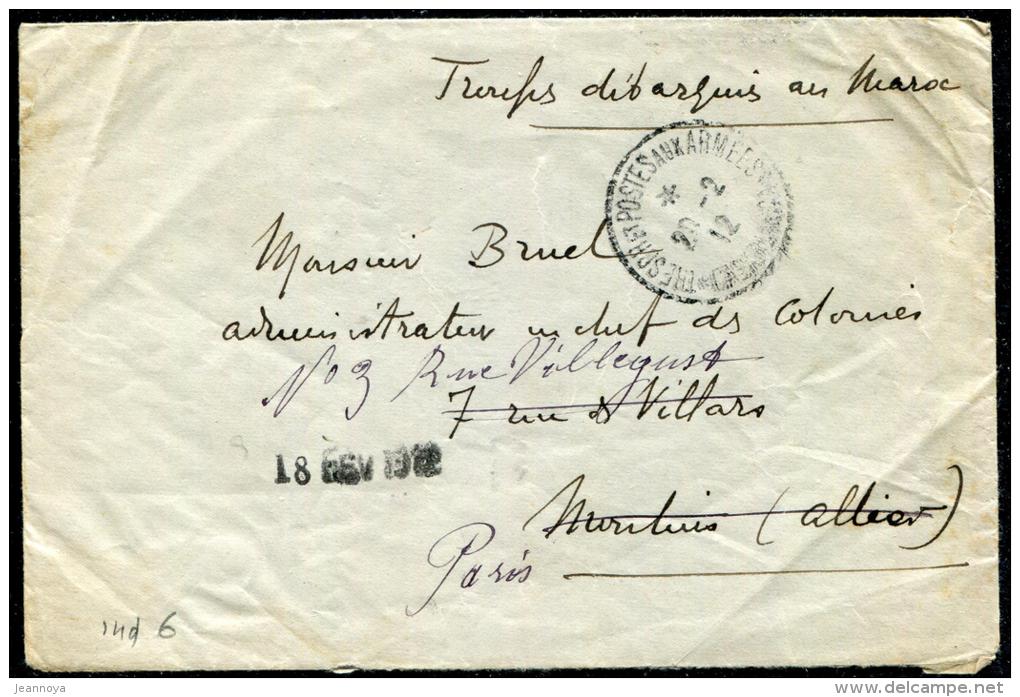 Troupes débarquées au Maroc
TRESOR ET POSTES AUX ARMEES
*
20 -2
12
Monsieur Bruel
administrateur en chef des colonies
No 3 Rue Villegust
7 rue de Villars
18 FEV 1912
Moulins (Allier)
Paris
ind 6
jeannoya
www.delcampe.net